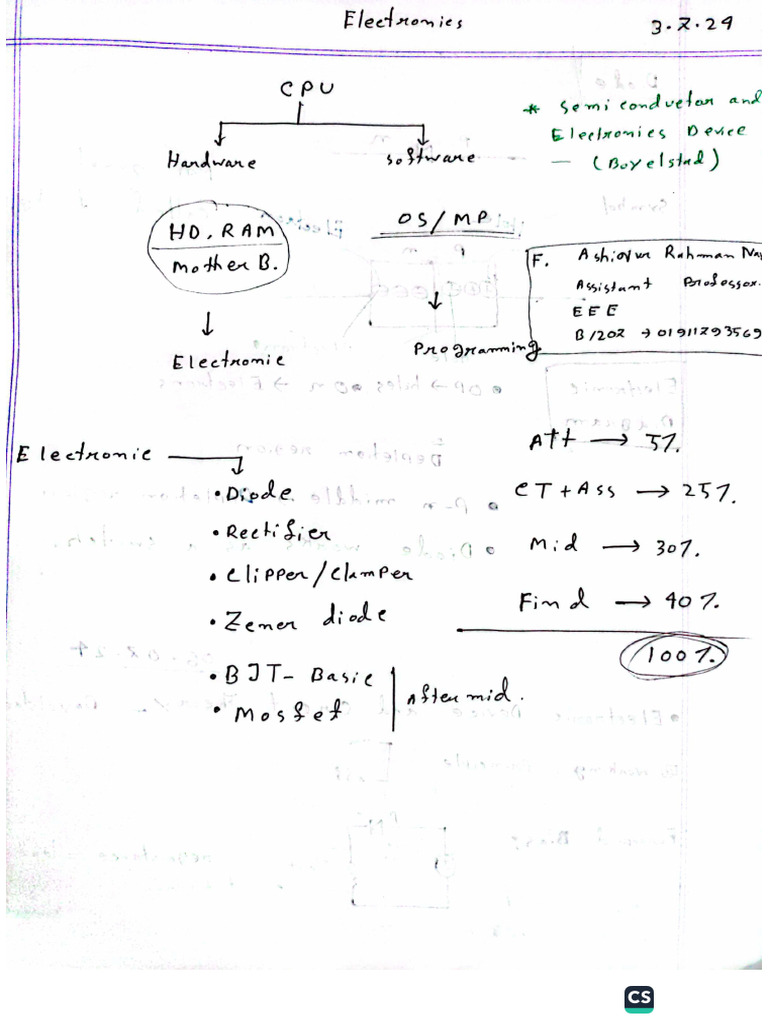 Electronics 3.7.24
CPU
Hardware Software
HD, RAM
Mother B.
OS/MP
Electronic
Programming
* Semiconductor and
Electronics Device
— (Boyelstad)
F. Rahman
Assistant Professor.
EEE
B/202 → 01911293569
Electronic →
• Diode
• Rectifier
• Clipper/Clamper
• Zener diode
• BJT- Basic
• Mosfet
After mid.
Att → 5%.
CT+Ass → 25%.
Mid → 30%.
Find → 40%.
100%.
CS